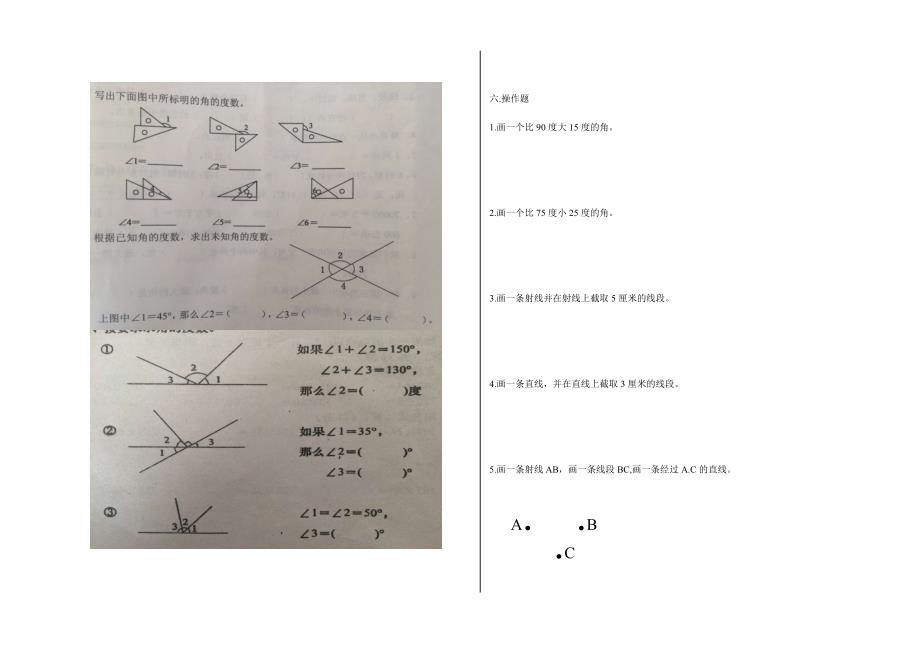 写出下面图中所标明的角的度数。
1
2
3
∠1=
∠2=
∠3=
4
5
6
∠4=
∠5=
∠6=
根据已知角的度数，求出未知角的度数。
2
1
3
4
上图中∠1=45°，那么∠2=（ ），∠3=（ ），∠4=（ ）。
①
2
3
1
如果∠1+∠2=150°，
∠2+∠3=130°，
那么∠2=( )度
②
2
1
3
如果∠1=35°，
那么∠2=( )°
∠3=( )°
③
3
2
1
∠1=∠2=50°，
∠3=( )°
六.操作题
1.画一个比 90 度大 15 度的角。
2.画一个比 75 度小 25 度的角。
3.画一条射线并在射线上截取 5 厘米的线段。
4.画一条直线，并在直线上截取 3 厘米的线段。
5.画一条射线 AB，画一条线段 BC,画一条经过 A.C 的直线。
A
B
C